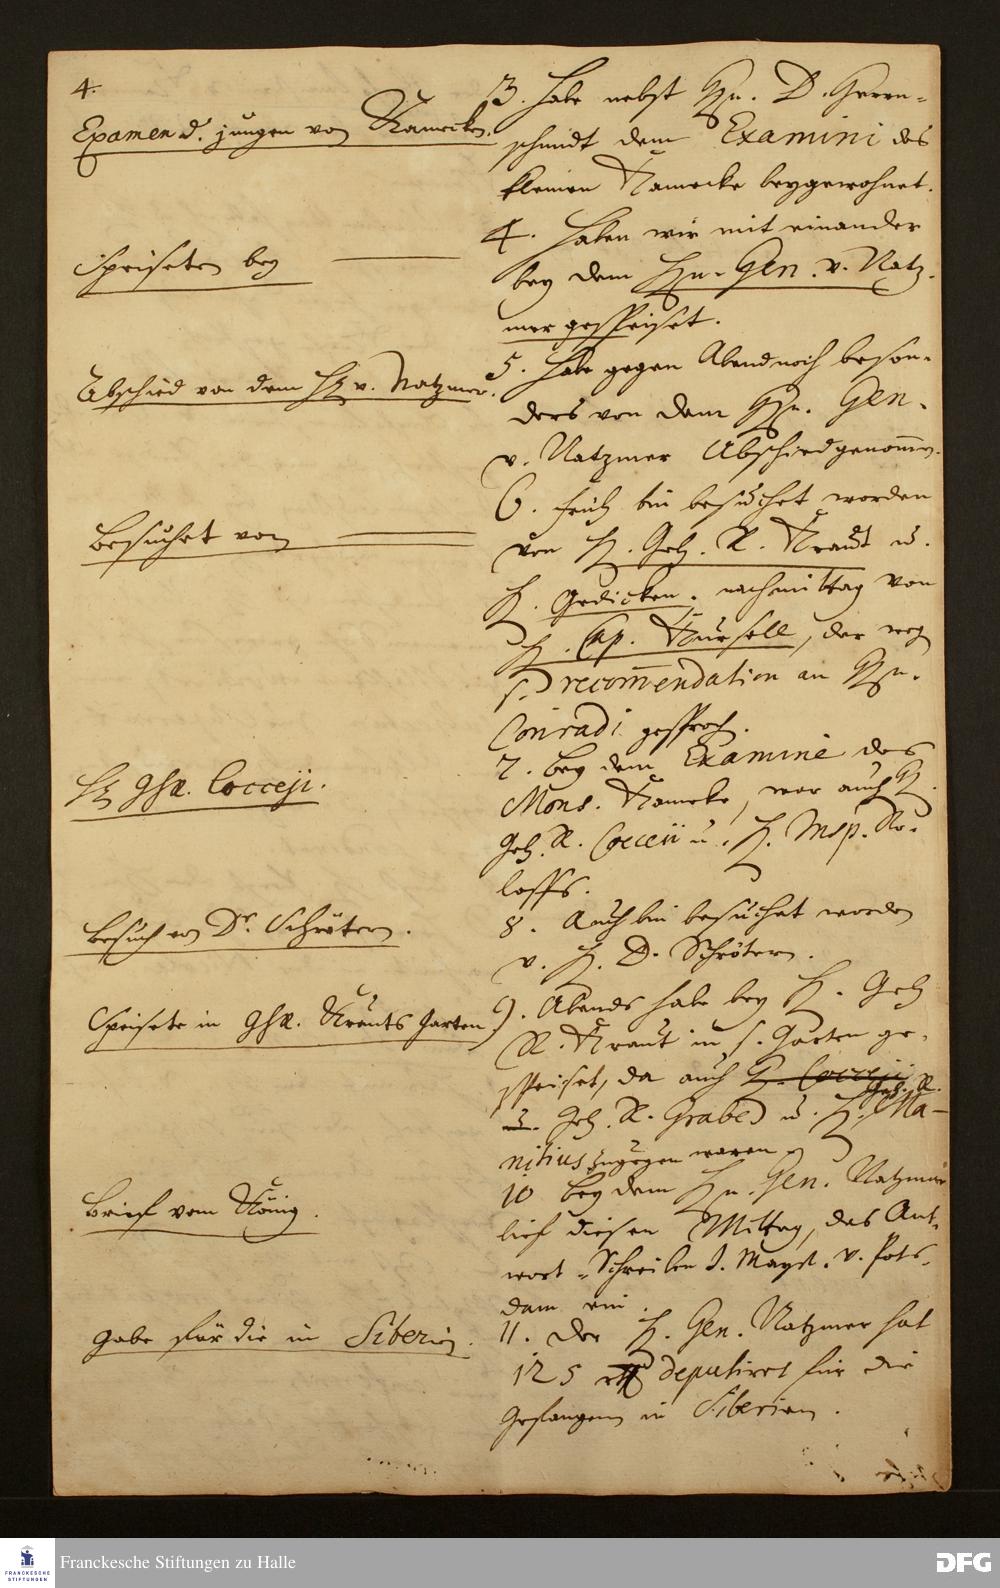 4.
Examen d. jungen von Kamecken.
Speiseten bey
Abschied von dem H v. Natzmer.
Besuchet von
H GhR. Cocceji.
Besuch von Dr. Schrötern.
Speisete in GhR. Krauts Garten
Brief vom König.
Gabe für die in Siberien.
3. Habe nebst Hn. D. Herrn-
schmidt dem Examini des
kleinen Kamecke beygewohnet.
4. Haben wir mit einander
bey dem Hn. Gen. v. Natz-
mer gespeiset.
5. Habe gegen Abend noch beson-
ders von dem Hn. Gen.
v. Natzmer Abschied genommen.
6. früh bin besuchet worden
von H. Geh. R. Kraut u.
H. Gedicken. nachmittag von
H. Cap. Kursell, der weg
s. recommendation an Hn.
Conradi gesproch.
7. Bey dem Examine des
Mons. Kamecke, war auch H.
Geh. R. Cocceji u. H. Insp. Ro-
loffs.
8. Auch bin besuchet worden
v. H. D. Schrötern.
9. Abends habe bey H. Geh
R. Kraut in s. Garten ge-
speiset, da auch H. Cocceji
u. Geh. R. Grabe u. H. Geh. R. Ma-
nitius zugegen waren.
10 Bey dem Hn. Gen. Natzmer
lief diesen Mittag, das Ant-
wort-Schreiben S. Mayst. v. Pots-
dam ein.
11. Der H. Gen. Natzmer hat
125 deputiret für die
Gefangenen in Siberien.
Franckesche Stiftungen zu Halle
FRANCKESCHE
STIFTUNGEN
DFG